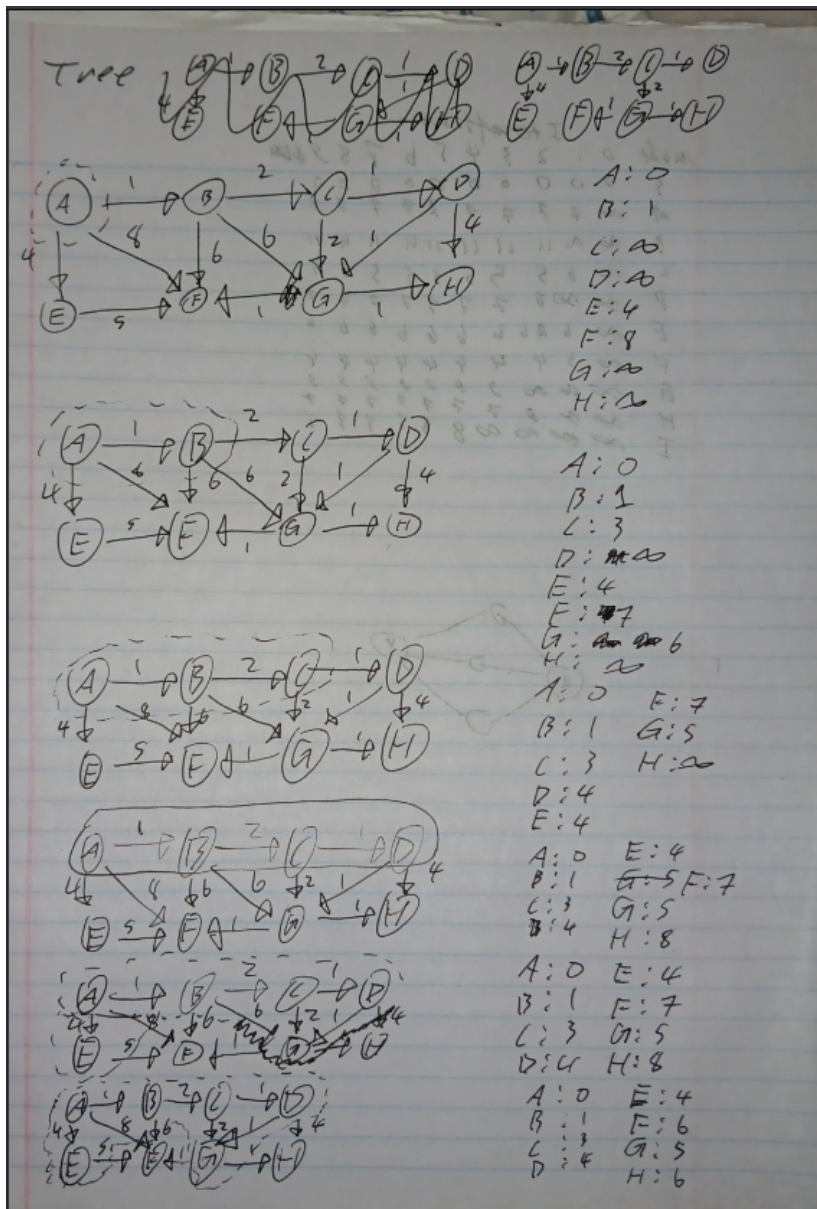 Tree
A 1 B 2 C 1 D
4
E F G 1 H
A 1 B 2 C 1 D
4 2
E F 1 G 1 H
A 1 B 2 C 1 D
4 8 6 6 2 1 4
E 5 F 1 G 1 H
A: 0
B: 1
C: ∞
D: ∞
E: 4
F: 8
G: ∞
H: ∞
A 1 B 2 C 1 D
4 6 6 6 2 1 4
E 5 F 1 G 1 H
A: 0
B: 1
C: 3
D: ∞
E: 4
F: 7
G: 6
H: ∞
A 1 B 2 C 1 D
4 8 6 6 2 1 4
E 5 F 1 G 1 H
A: 0 F: 7
B: 1 G: 5
C: 3 H: ∞
D: 4
E: 4
A 1 B 2 C 1 D
4 8 6 6 2 1 4
E 5 F 1 G 1 H
A: 0 E: 4
B: 1 G: 5 F: 7
C: 3 G: 5
D: 4 H: 8
A 1 B 2 C 1 D
4 8 6 6 2 1 4
E 5 F 1 G H
A: 0 E: 4
B: 1 F: 7
C: 3 G: 5
D: 4 H: 8
A 1 B 2 C 1 D
4 8 6 2 1 4
E 5 F 1 G 1 H
A: 0 E: 4
B: 1 F: 6
C: 3 G: 5
D: 4 H: 6